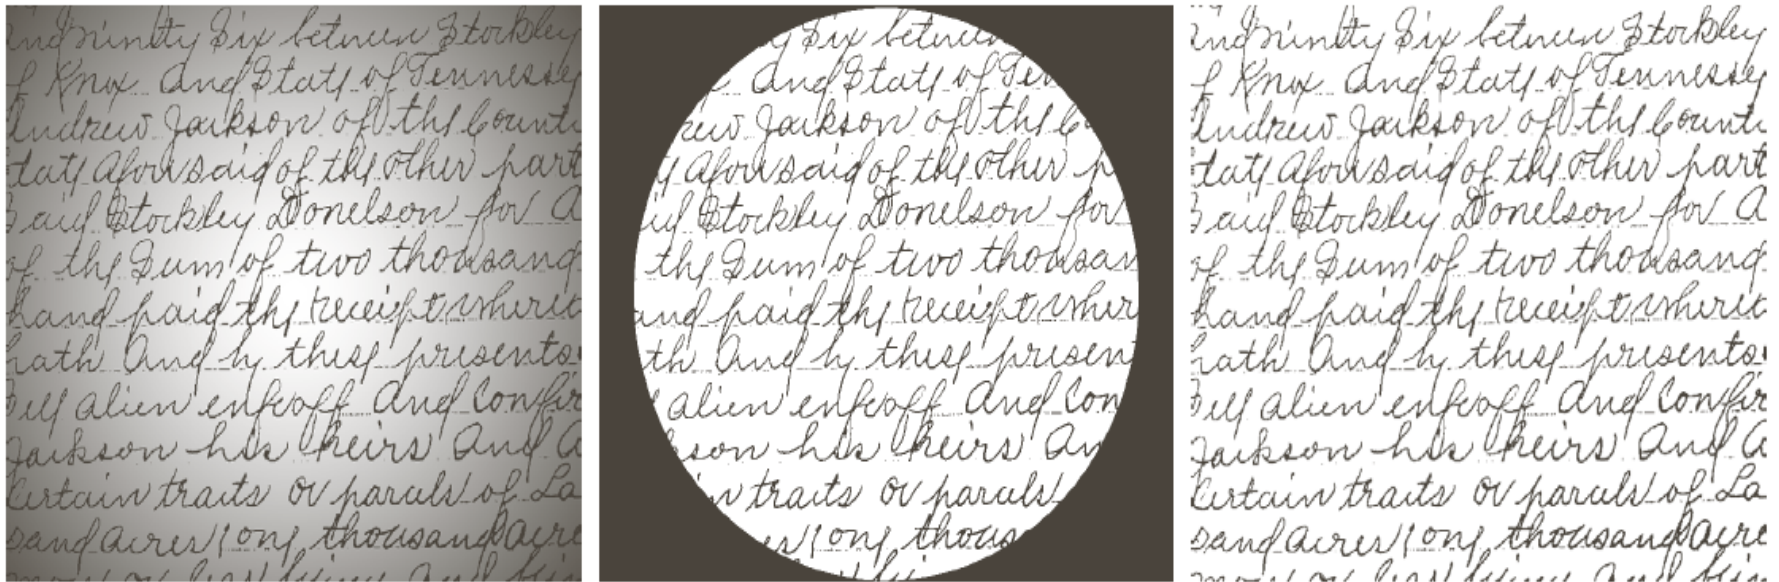 and ninety Six between Stockley
of Knox And State of Tennessee
Andrew Jackson of the Count
tate aforesaid of the other part
Said Stockley Donelson for A
of the Sum of two thousand
hand paid the receipt where
hath And by these presents
ell alien enfeoff And Confir
Jackson his heirs And A
Certain traits or parcels of La
sand acres one thousand acre
y Six between
And State of Ten
rew Jackson of the Co
aforesaid of the other p
id Stockley Donelson for
the Sum of two thousan
and paid the receipt wher
th And by these presen
alien enfeoff And Con
kson his heirs An
in traits or parcels
es one thous
and ninety Six between Stockley
of Knox And State of Tennessee
Andrew Jackson of the Count
tate aforesaid of the other part
Said Stockley Donelson for A
of the Sum of two thousand
hand paid the receipt where
hath And by these presents
ell alien enfeoff And Confir
Jackson his heirs And A
Certain traits or parcels of La
sand acres one thousand acre